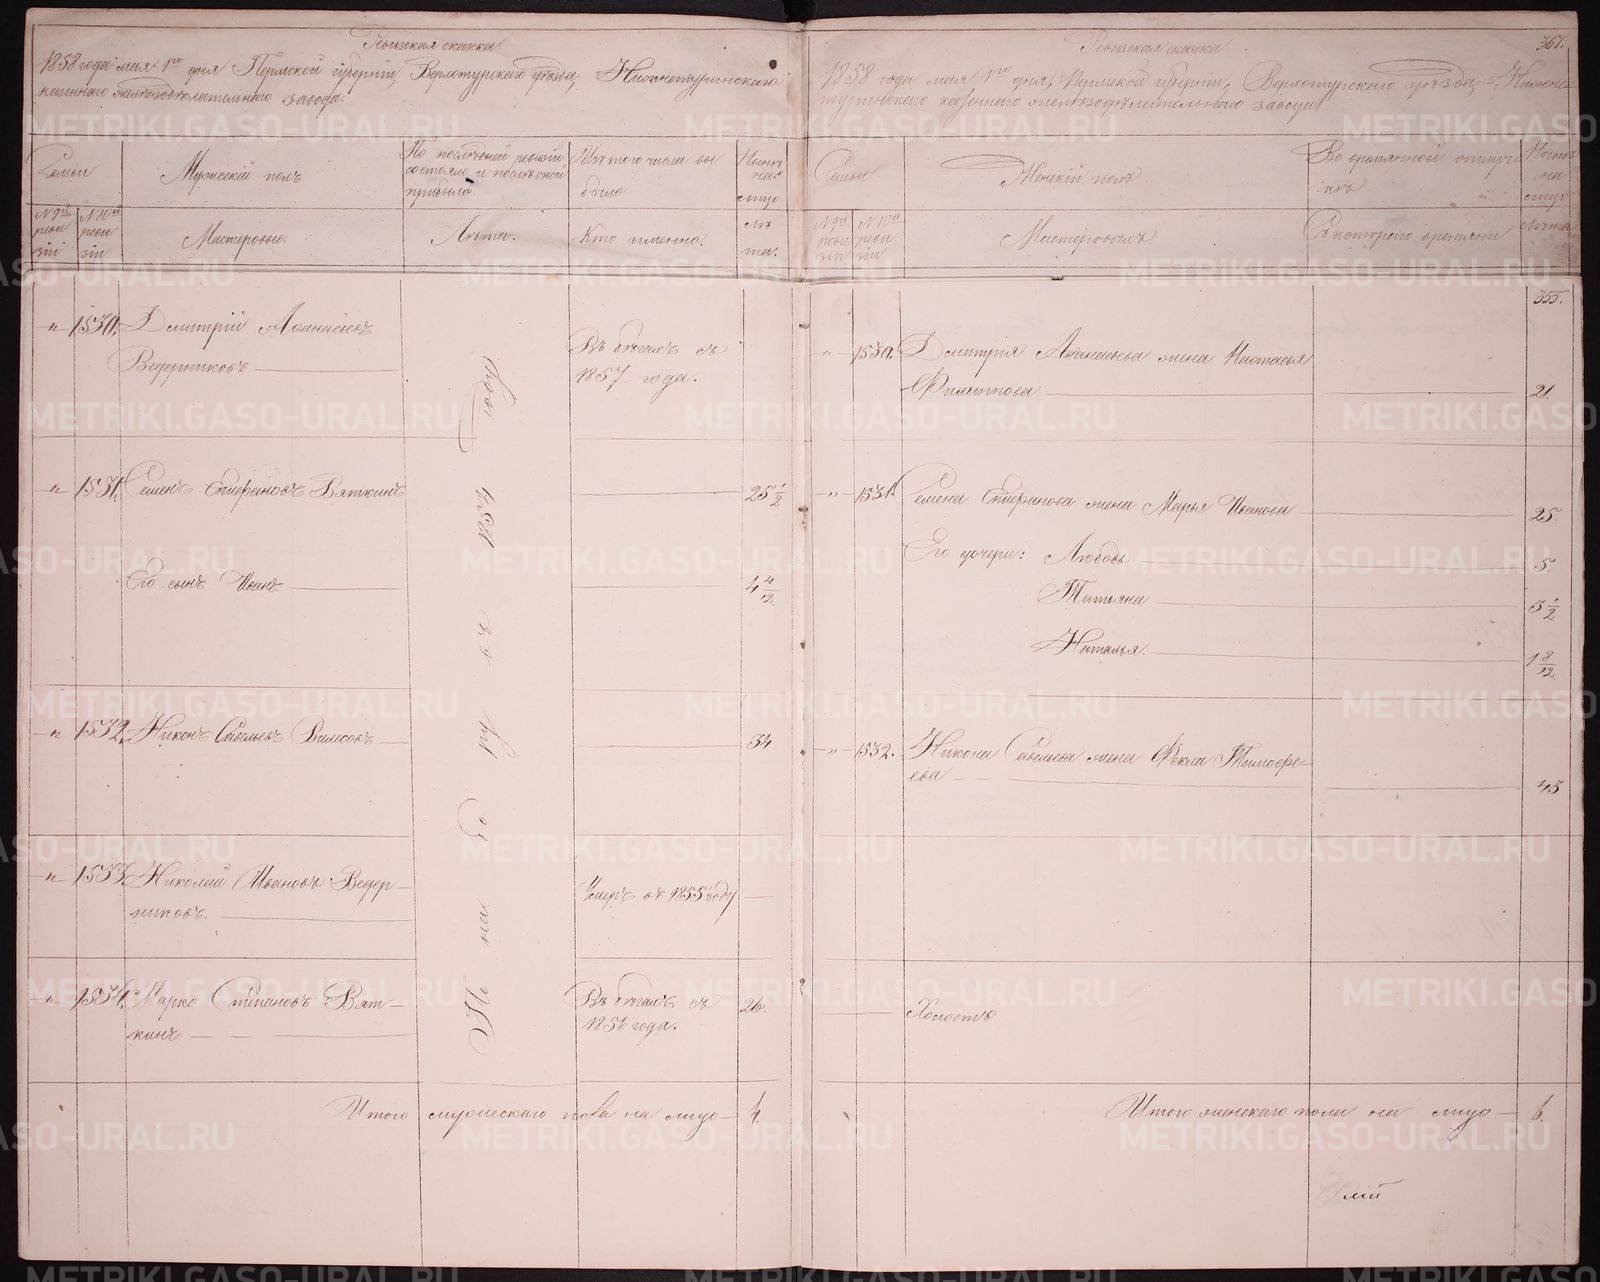 Ревизская сказка
1858 года мая 1го дня Пермской губерніи, Верхотурскаго уѣзда, Нижнетуринскаго
казеннаго желѣзодѣлательнаго завода.
Семьи
Мужескій полъ
По послѣдней ревизіи
состояло и послѣ оной
прибыло
Изъ того числа вы
было
Нынѣ
на
лицо
№ 9й
реви
зіи
№ 10й
реви
зіи
Мастеровые.
Лѣта.
Кто именно.
Лѣ
та.
„ 1530. Дмитрій Афанасьевъ
Ведерниковъ
Въ бѣгахъ съ
1857 года.
„ 1531. Семенъ Вяткинъ
25 1/2
Его сынъ Иванъ
4 4/12
„ 1532. Никонъ Савельевъ
34
„ 1533. Николай Ивановъ Ведер-
никовъ.
Умеръ въ 1855 году
„ 1534. Марко Степановъ Вят-
кинъ
Въ бѣгахъ съ
1856 года.
26.
1857 году
Итого мужескаго пола на лицо 4.
Ревизская сказка
367.
1858 года мая 1го дня, Пермской губерніи, Верхотурскаго уѣзда, Нижне-
туринскаго казеннаго желѣзодѣлательнаго завода
Семьи
Женскій полъ
Во временной отлуч
кѣ
Нынѣ
на
лицо
№ 9й
реви
зіи
№ 10й
реви
зіи
Мастеровыхъ
Съ котораго времяни
Лѣта
355.
„ 1530. Дмитрія Афанасьева жена Настасья
Филиппова
21.
„ 1531. Семена жена Марья Иванова
25.
Его дочери: Любовь
5.
Татьяна
3 1/2
Наталья.
1 8/12
„ 1532. Никона Савельева жена Фекла Тимофе-
ева
43
Холостъ
Итого женскаго пола на лицо 6.